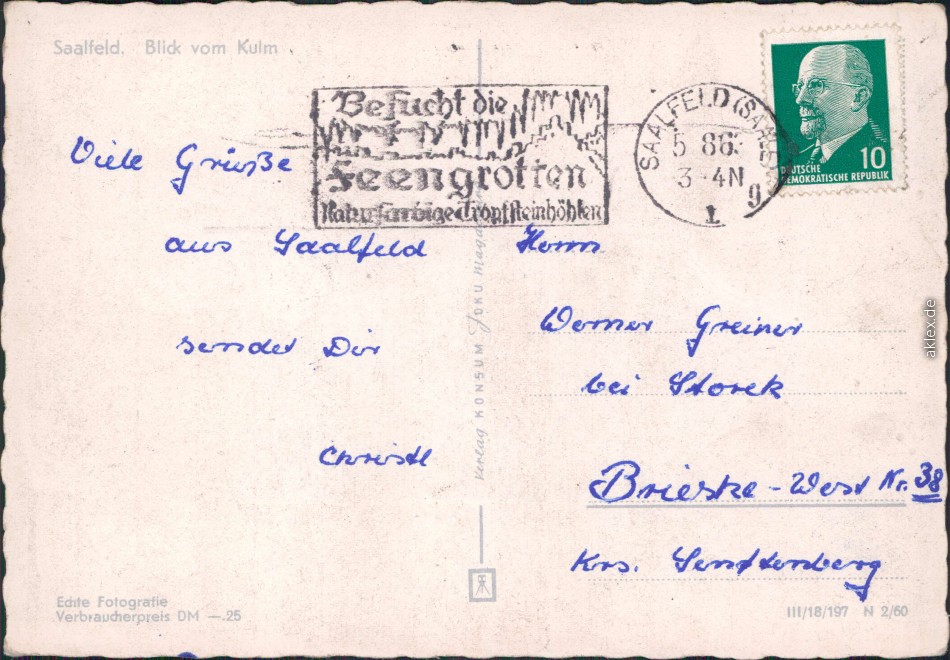 Saalfeld. Blick vom Kulm
Besucht die
Feengrotten
Naturfarbige Tropfsteinhöhlen
SAALFELD (SAALE)
5 86
3-4N
1
g
10
DEUTSCHE
DEMOKRATISCHE REPUBLIK
Viele Grüße
aus Saalfeld
sendet Dir
Christl
Verlag KONSUM FOKU Magd
Herrn
Werner Greiner
bei Storek
Brieske-West Nr. 38
Krs. Senftenberg
Echte Fotografie
Verbraucherpreis DM —.25
III/18/197 N 2/60
aklex.de